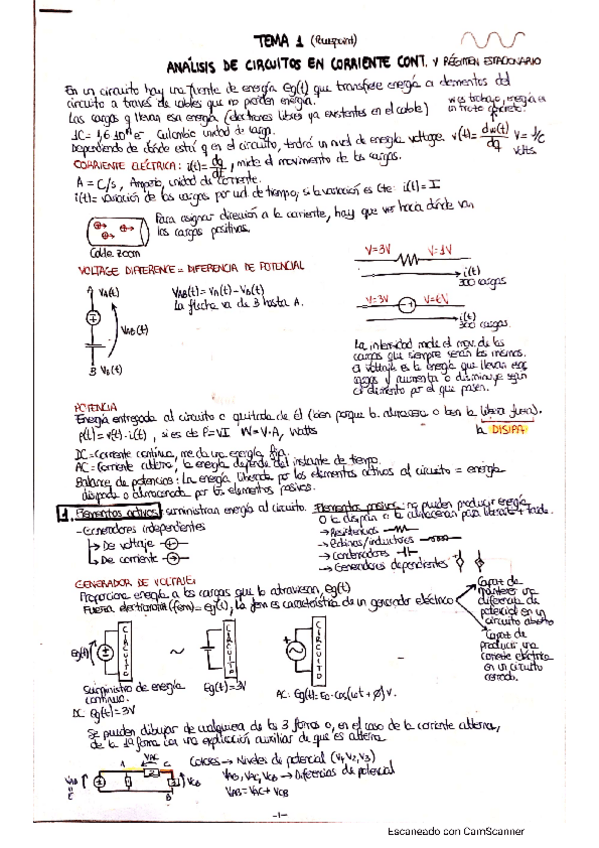 TEMA 1 (Powerpoint)
ANÁLISIS DE CIRCUITOS EN CORRIENTE CONT. Y RÉGIMEN ESTACIONARIO
En un circuito hay una fuente de energía Eg(t) que transfiere energía a elementos del
circuito a través de cables que no pierden energía.
Las cargas q llevan esa energía (electrones libres ya existentes en el cable)
w es trabajo, energía en
un punto concreto.
Culombio unidad de carga.
Dependiendo de dónde está q en el circuito, tendrá un nivel de energía voltage. v(t) = dw(t)/dq V = J/C
Volts
CORRIENTE ELÉCTRICA: i(t) = dq/dt, mide el movimiento de las cargas.
A = C/s, Amperio, unidad de corriente.
i(t) = variación de las cargas por ud. de tiempo, si la variación es cte: i(t) = I
Para asignar dirección a la corriente, hay que ver hacia dónde van
las cargas positivas.
Cable zoom
V=3V V=1V
i(t)
300 cargas
VOLTAGE DIFFERENCE = DIFERENCIA DE POTENCIAL
A VA(t)
VAB(t) = VA(t) - VB(t)
La flecha va de B hasta A.
VAB(t)
B VB(t)
V=3V V=6V
i(t)
300 cargas
La intensidad mide el mov. de las
cargas que siempre serán las mismas.
El voltaje es la energía que llevan esas
cargas y aumenta o disminuye según
el elemento por el que pasen.
POTENCIA
Energía entregada al circuito o quitada de él (bien porque la almacena o bien la libera fuera).
la DISIPA
p(t) = v(t) · i(t), si es dc P = VI W = V·A, Watts
DC = corriente continua, me da una energía fija.
AC = corriente alterna, la energía depende del instante de tiempo.
Balance de potencias: La energía liberada por los elementos activos al circuito = energía
disipada o almacenada por los elementos pasivos.
1. Elementos activos: suministran energía al circuito. Elementos pasivos: no pueden producir energía
O la disipan o la almacenan para liberarla + tarde.
- Generadores independientes
De voltaje
De corriente
→ Resistencias
→ Bobinas/inductores
→ Condensadores
→ Generadores dependientes
GENERADOR DE VOLTAJE:
Proporciona energía a las cargas que lo atraviesan, Eg(t)
Fuerza electromotriz (fem) = eg(t), la fem es característica de un generador eléctrico
Capaz de
mantener una
diferencia de
potencial en un
circuito abierto
Capaz de
producir una
corriente eléctrica
en un circuito
cerrado.
Eg(t)
CIRCUITO
~
CIRCUITO
CIRCUITO
Suministro de energía
continuo.
DC Eg(t) = 3V
Eg(t) = 3V
AC: Eg(t) = E0 · cos(ωt + Ø) V.
Se pueden dibujar de cualquiera de las 3 formas o, en el caso de la corriente alterna,
de la 1ª forma con una explicación auxiliar de que es alterna
A VAC C
VCB
B
Colores → Niveles de potencial (V1, V2, V3)
VAB, VAC, VCB → Diferencias de potencial
VAB = VAC + VCB
-1-
Escaneado con CamScanner